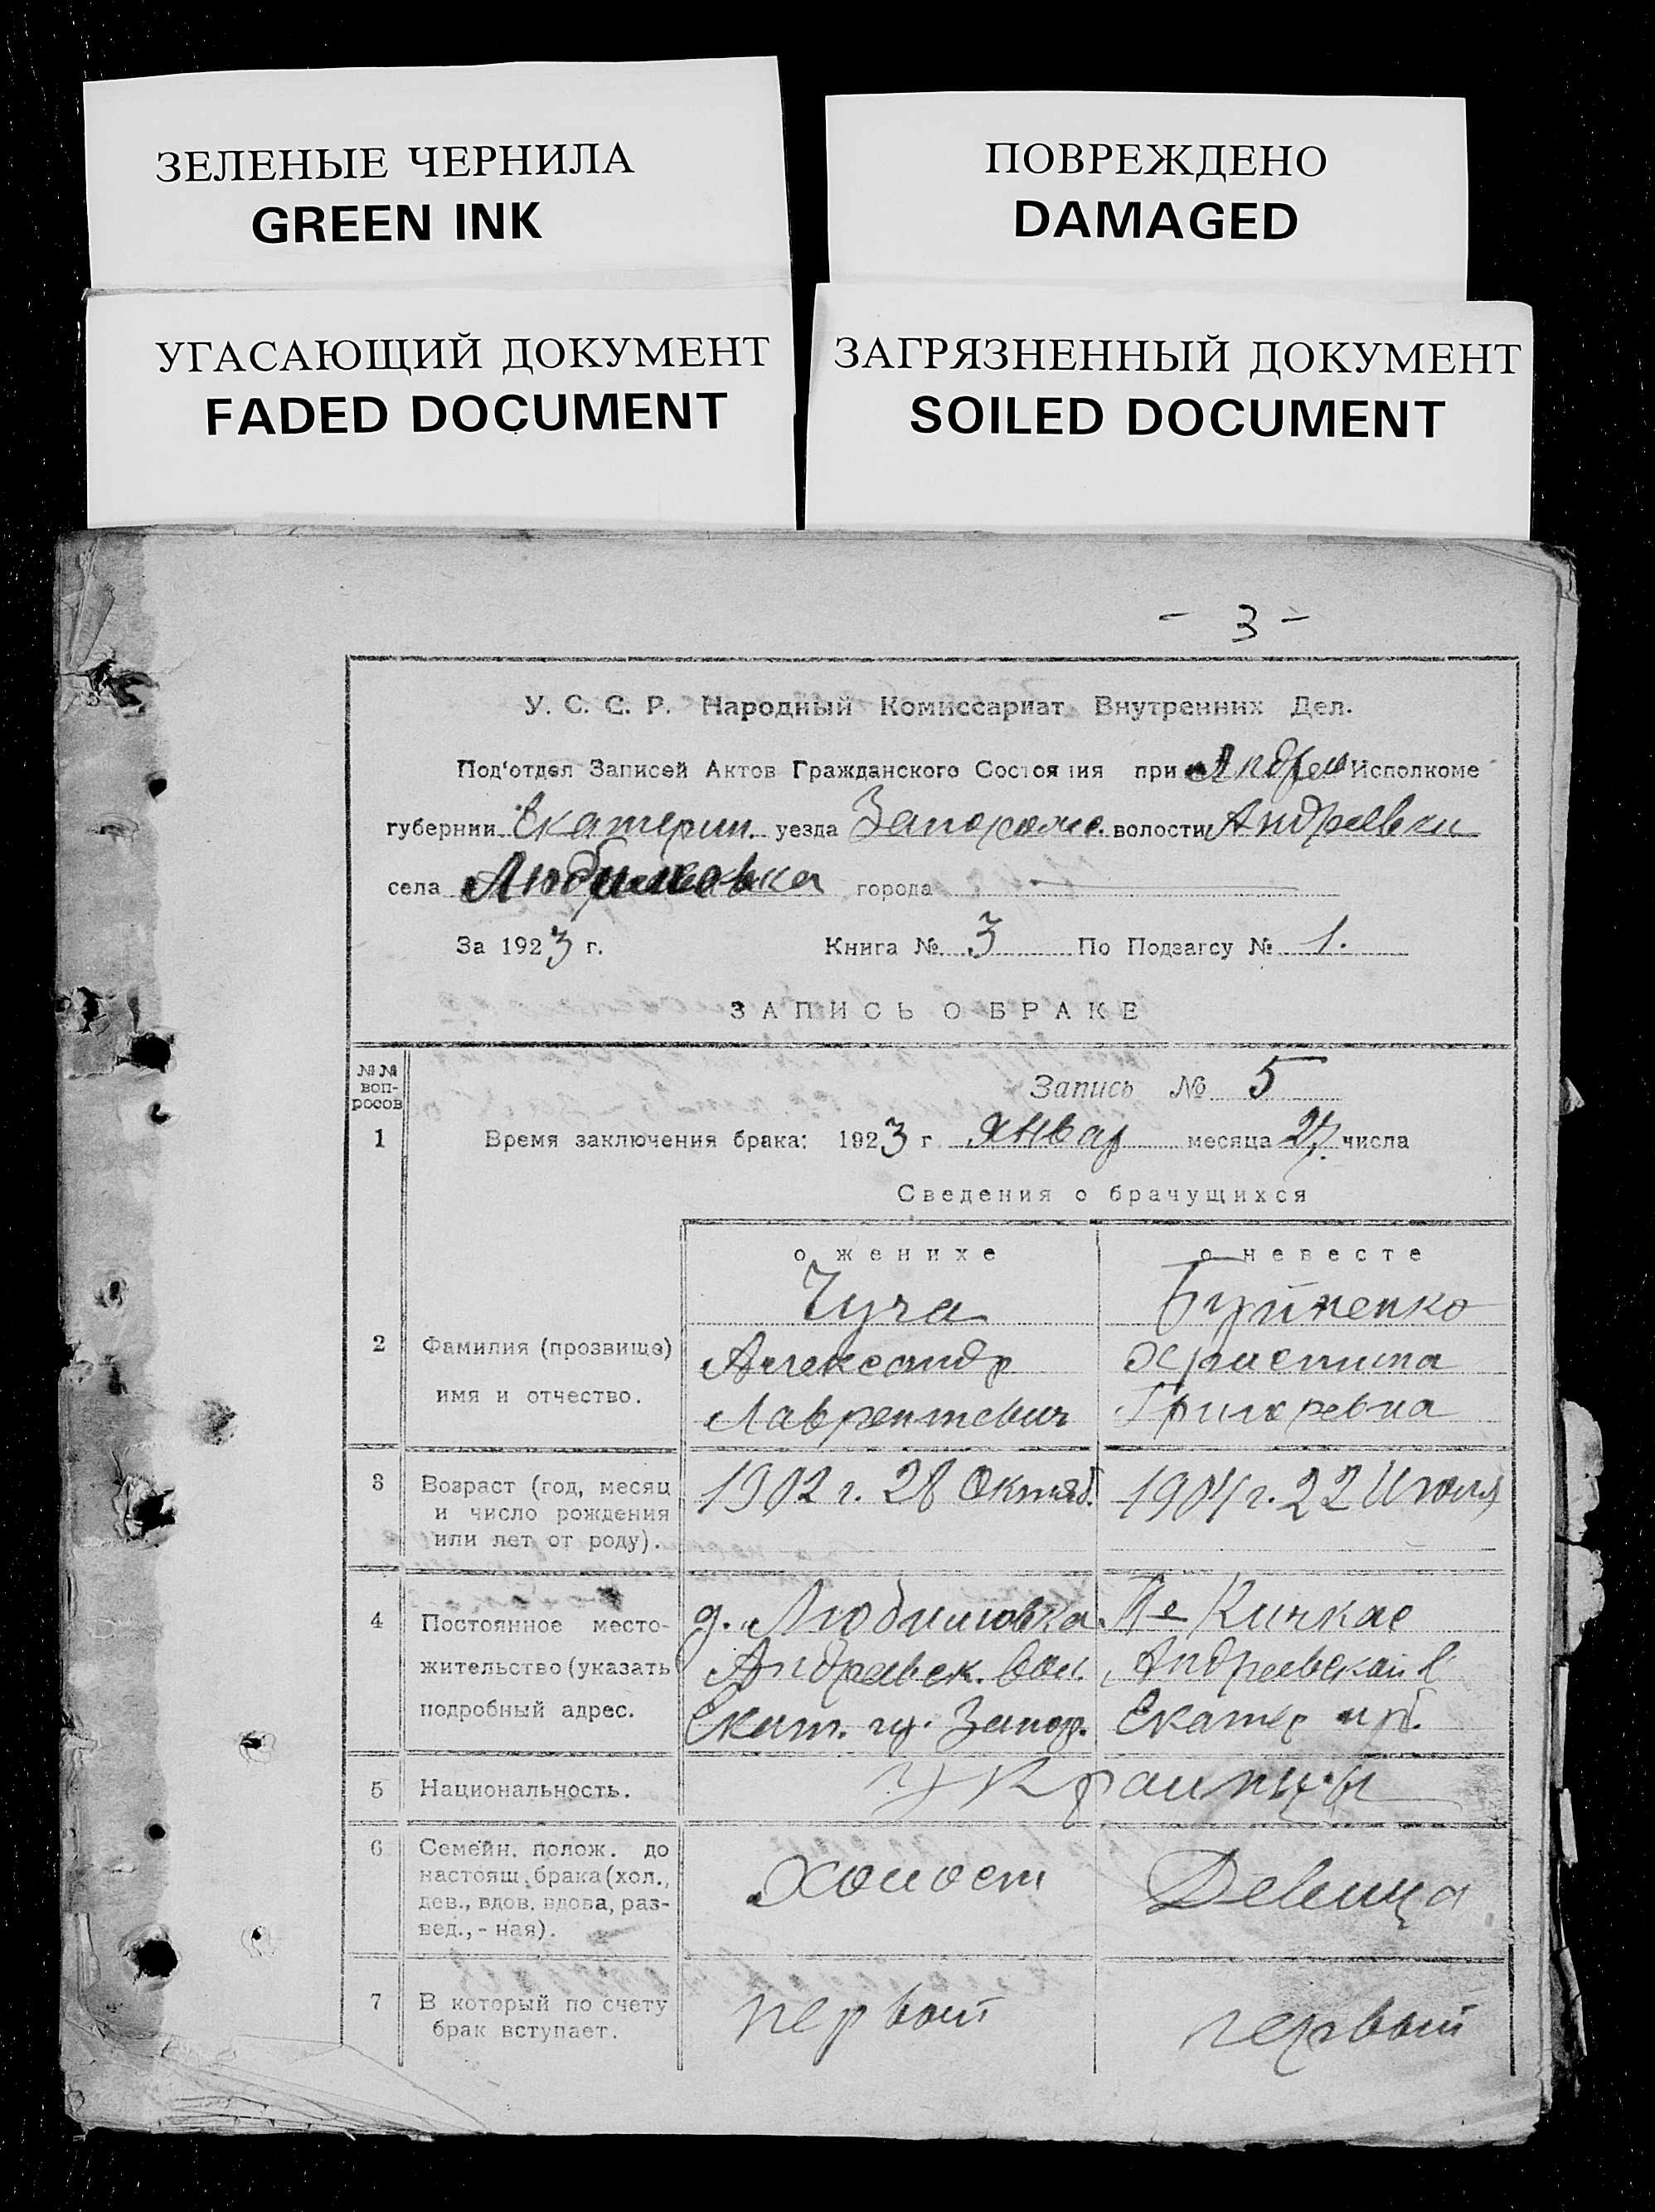 ЗЕЛЕНЫЕ ЧЕРНИЛА
GREEN INK
ПОВРЕЖДЕНО
DAMAGED
УГАСАЮЩИЙ ДОКУМЕНТ
FADED DOCUMENT
ЗАГРЯЗНЕННЫЙ ДОКУМЕНТ
SOILED DOCUMENT
- 3 -
У. С. С. Р. Народный Комиссариат Внутренних Дел.
Под'отдел Записей Актов Гражданского Состояния при Исполкоме
губернии Екатерин. уезда Запорож. волости Андреевки
села Любимовка города
За 1923 г. Книга № 3 По Подзагсу № 1.
ЗАПИСЬ О БРАКЕ
№№ воп-
росов
Запись № 5
1 Время заключения брака: 1923 г январ месяца 27 числа
Сведения о брачущихся
о женихе о невесте
Чуча
2 Фамилия (прозвище) Александр Христина
имя и отчество. Лаврентевич Григоревна
3 Возраст (год, месяц 1902 г. 28 Октяб. 1904 г. 22 Июля
и число рождения
или лет от роду).
4 Постоянное место- д. Любимовка Кичкас
жительство (указать Андреевск. вол. Андреевской в
подробный адрес. Екат. гу. Запор. Екатер
5 Национальность. Украинцы
6 Семейн. полож. до
настоящ. брака (хол., Холост Девица
дев., вдов, вдова, раз-
вед., - ная).
7 В который по счету первый первый
брак вступает.